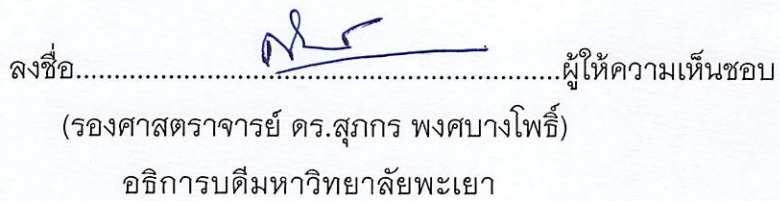 ลงชื่อ...............................................................ผู้ให้ความเห็นชอบ
(รองศาสตราจารย์ ดร.สุภกร พงศบางโพธิ์)
อธิการบดีมหาวิทยาลัยพะเยา